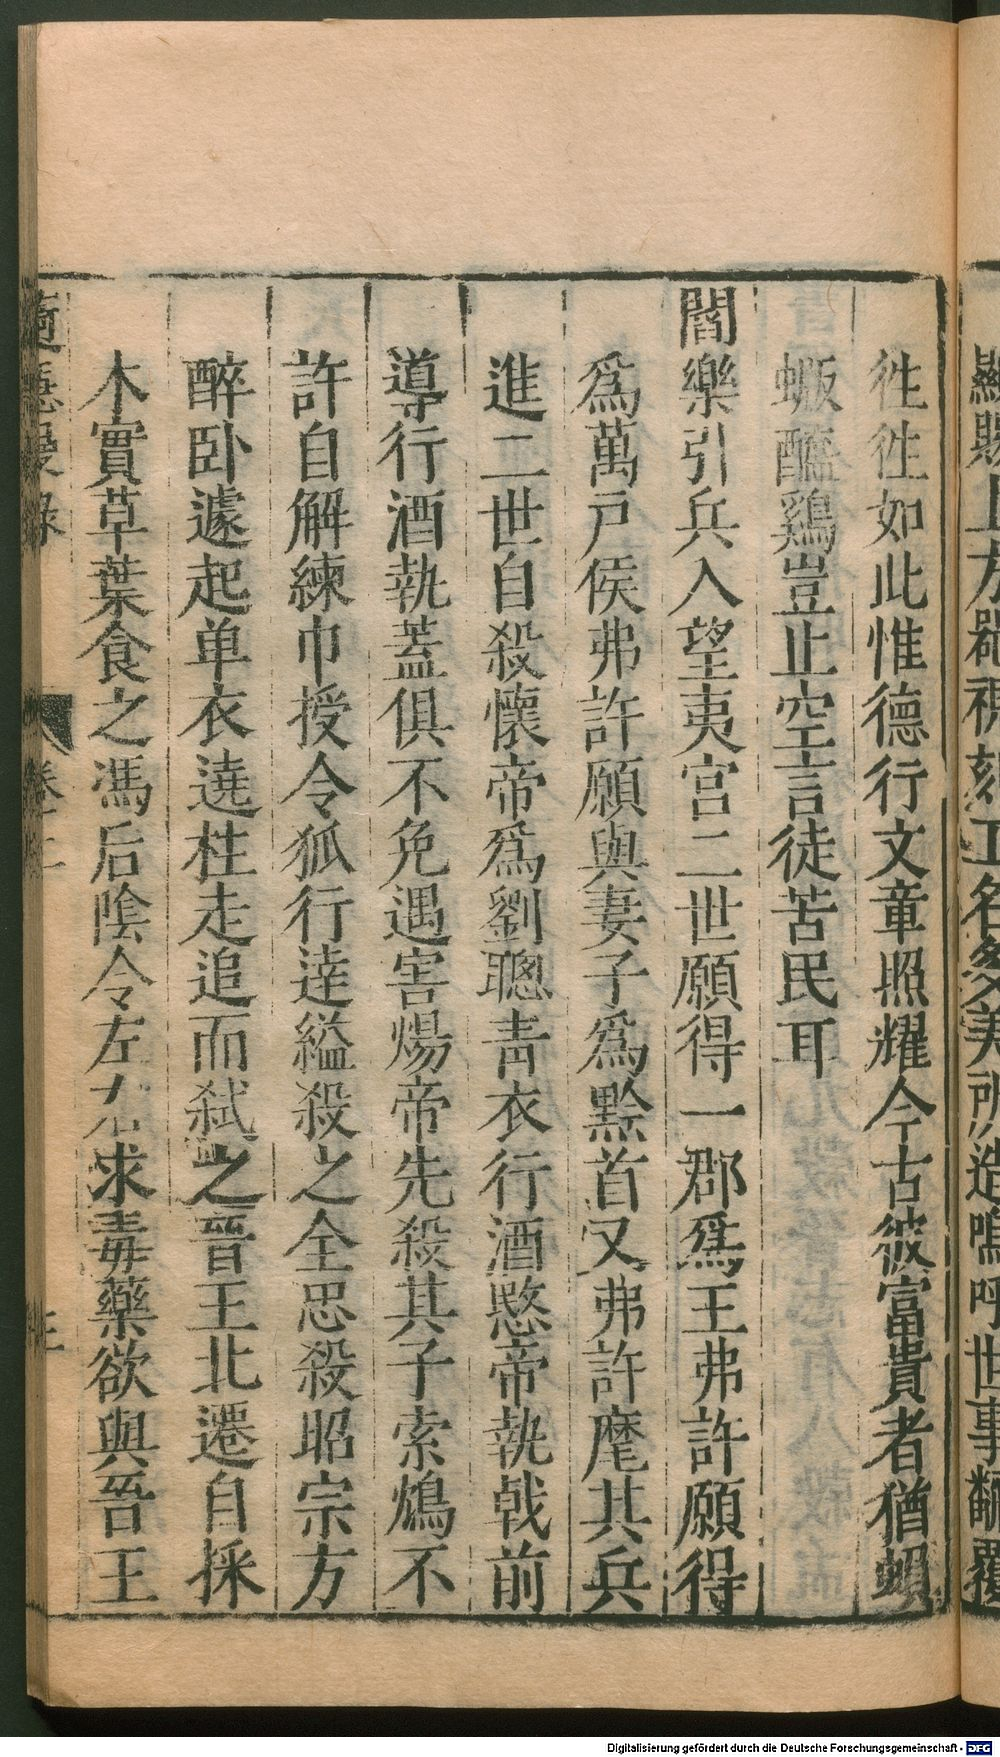 徃徃如此惟德行文章照耀今古彼富貴者猶蝜
蝂醯鷄豈止空言徒苦民耳
閻樂引兵入望夷宮二世願得一郡爲王弗許願得
爲萬戸侯弗許願與妻子爲黔首又弗許麾其兵
進二世自殺懷帝爲劉聰青衣行酒愍帝執戟前
導行酒執蓋俱不免遇害煬帝先殺其子索鴆不
許自解練巾授令狐行逹縊殺之全忠殺昭宗方
醉卧遽起单衣遶柱走追而弑之晉王北遷自採
木實草葉食之馮后隂令左右求毒藥欲與晉王
適
錄
卷二
三
Digitalisierung gefördert durch die Deutsche Forschungsgemeinschaft - DFG